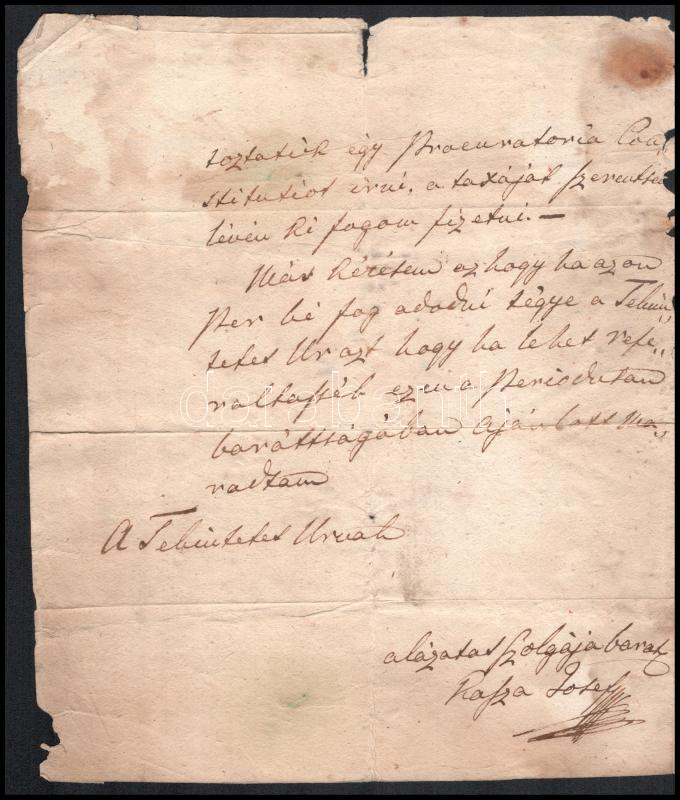 toztatik égy Procuratoria Con„
stitutiot irni, a taxáját szerentsés
lévén ki fogom fizetni. —
Más kérésem az hogy ha azon
Per bé fog adodni tégye a Tekin„
tetes Ur azt hogy ha lehet refe„
ráltassék ezen a Perioduson
baráttságában ajánlott ma„
radtam
A Tekintetes Urnak
alázatos szolgája barát
Kasza Josef
databanth